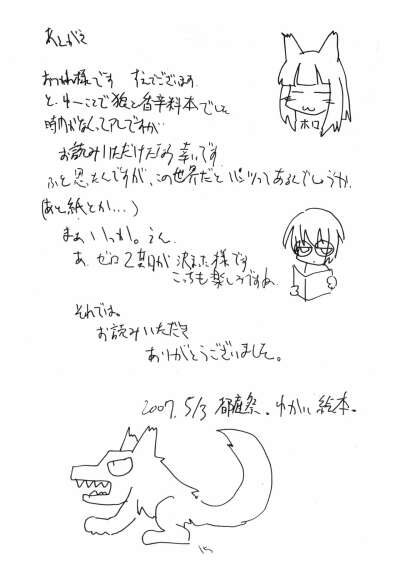 あとがき
おつかれ様です すえでございます。
と、ゆーことで狼と香辛料本でして
時間がなくってアレですが
お読みいただけたなら幸いです。
ふと思ったんですが、この世界だと パンツってあるんでしょうか。
(あと紙とか…)
まぁいっか。うん。
あ、ゼロ2期が決まった様です
こっちも楽しみですね。
それでは。
お読みいただき
ありがとうございました。
2007. 5/3 都産祭。ゆかい絵本。
ホロ
15